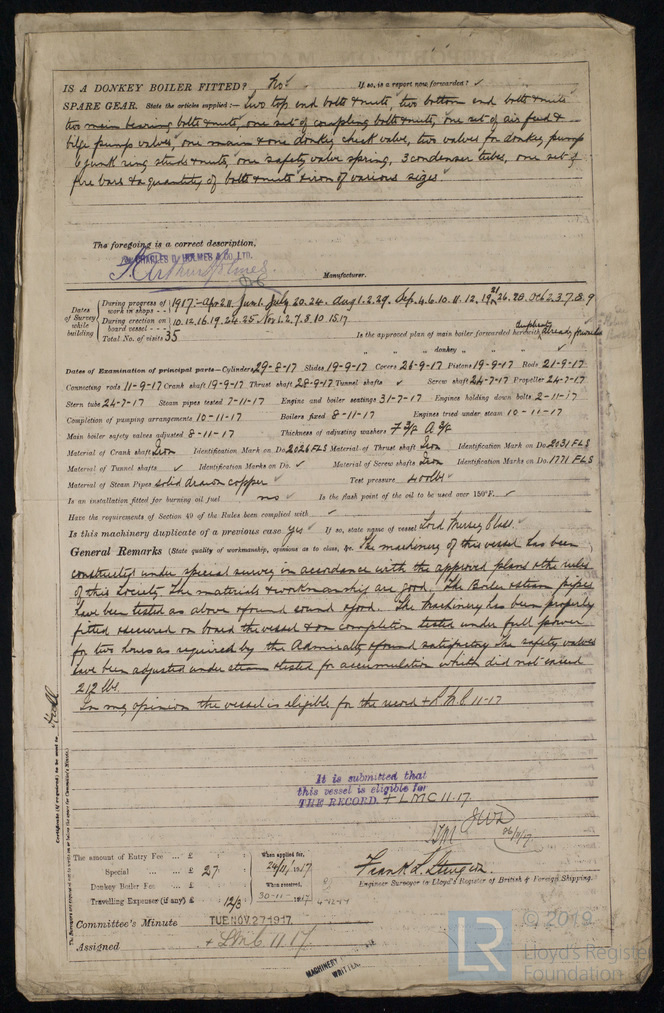 IS A DONKEY BOILER FITTED? No. If so, is a report now forwarded? ✓
SPARE GEAR. State the articles supplied:— Two top end bolts & nuts, two bottom end bolts & nuts
two main bearing bolts & nuts, one set of coupling bolts & nuts, one set of air feed &
bilge pump valves, one main & one donkey check valve, two valves for donkey pump
6 junk ring studs & nuts, one safety valve spring, 3 condenser tubes, one set of
fire bars & a quantity of bolts & nuts & iron of various sizes.
The foregoing is a correct description,
CHARLES D. HOLMES & CO. LTD.
Manufacturer.
Dates of Survey while building
During progress of work in shops - - 1917:- Apr 2.11. Jun 1. July 20.24. Aug 1.2.29. Sep. 4.6.10.11.12.19.21.26.28. Oct 2.3.7.8.9
During erection on board vessel - - - 10.12.16.19.24.25. Nov 1.2.7.8.10 15.17
Total No. of visits 35
Is the approved plan of main boiler forwarded herewith
" " " donkey " " ✓
Dates of Examination of principal parts—Cylinders 29-8-17 Slides 19-9-17 Covers 26-9-17 Pistons 19-9-17 Rods 21-9-17
Connecting rods 11-9-17 Crank shaft 19-9-17 Thrust shaft 28-9-17 Tunnel shafts ✓ Screw shaft 24-7-17 Propeller 24-7-17
Stern tube 24-7-17 Steam pipes tested 7-11-17 Engine and boiler seatings 31-7-17 Engines holding down bolts 2-11-17
Completion of pumping arrangements 10-11-17 Boilers fixed 8-11-17 Engines tried under steam 10-11-17
Main boiler safety valves adjusted 8-11-17 Thickness of adjusting washers
Material of Crank shaft Iron Identification Mark on Do. 2026 FLS Material of Thrust shaft Iron Identification Mark on Do. 2031 FLS
Material of Tunnel shafts ✓ Identification Marks on Do. ✓ Material of Screw shafts Iron Identification Marks on Do. 1771 FLS
Material of Steam Pipes Solid drawn copper ✓ Test pressure 400 lbs ✓
Is an installation fitted for burning oil fuel no ✓ Is the flash point of the oil to be used over 150°F. ✓
Have the requirements of Section 49 of the Rules been complied with ✓
Is this machinery duplicate of a previous case yes ✓ If so, state name of vessel Lord Mersey Class ✓
General Remarks (State quality of workmanship, opinions as to class, &c. The machinery of this vessel has been
constructed under special survey in accordance with the approved plans & the rules
of this Society. The materials & workmanship are good. The Boiler & steam pipes
have been tested as above & found sound & good. The machinery has been properly
fitted & secured on board the vessel & on completion tested under full power
for two hours as required by the Admiralty & found satisfactory. The safety valves
have been adjusted under steam & tested for accumulation which did not exceed
212 lbs.
In my opinion the vessel is eligible for the record + L.M.C 11-17
It is submitted that
this vessel is eligible for
THE RECORD. + LMC 11.17.
The amount of Entry Fee ... £ : :
Special ... £ 27 : :
Donkey Boiler Fee ... £ : :
Travelling Expenses (if any) £ : 12/6 :
When applied for,
24/11/1917.
When received,
30-11-1917
Frank L. Sturgeon
Engineer Surveyor to Lloyd's Register of British & Foreign Shipping.
Committee's Minute TUE. NOV. 27 1917
Assigned + L.M.C. 11.17.
MACHINERY
WRITTEN.
Hull
Certificate (if required) to be sent to
© 2019
LR
Lloyd's Register
Foundation